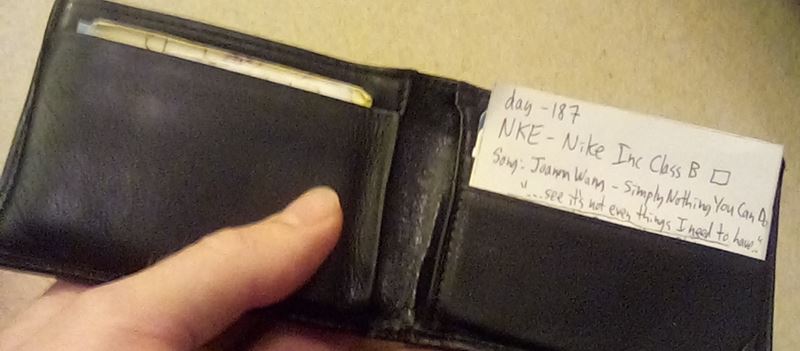 day -187
NKE - Nike Inc Class B □
Song: Joanna Wang - Simply Nothing You Can Do
"...see it's not even things I need to have."